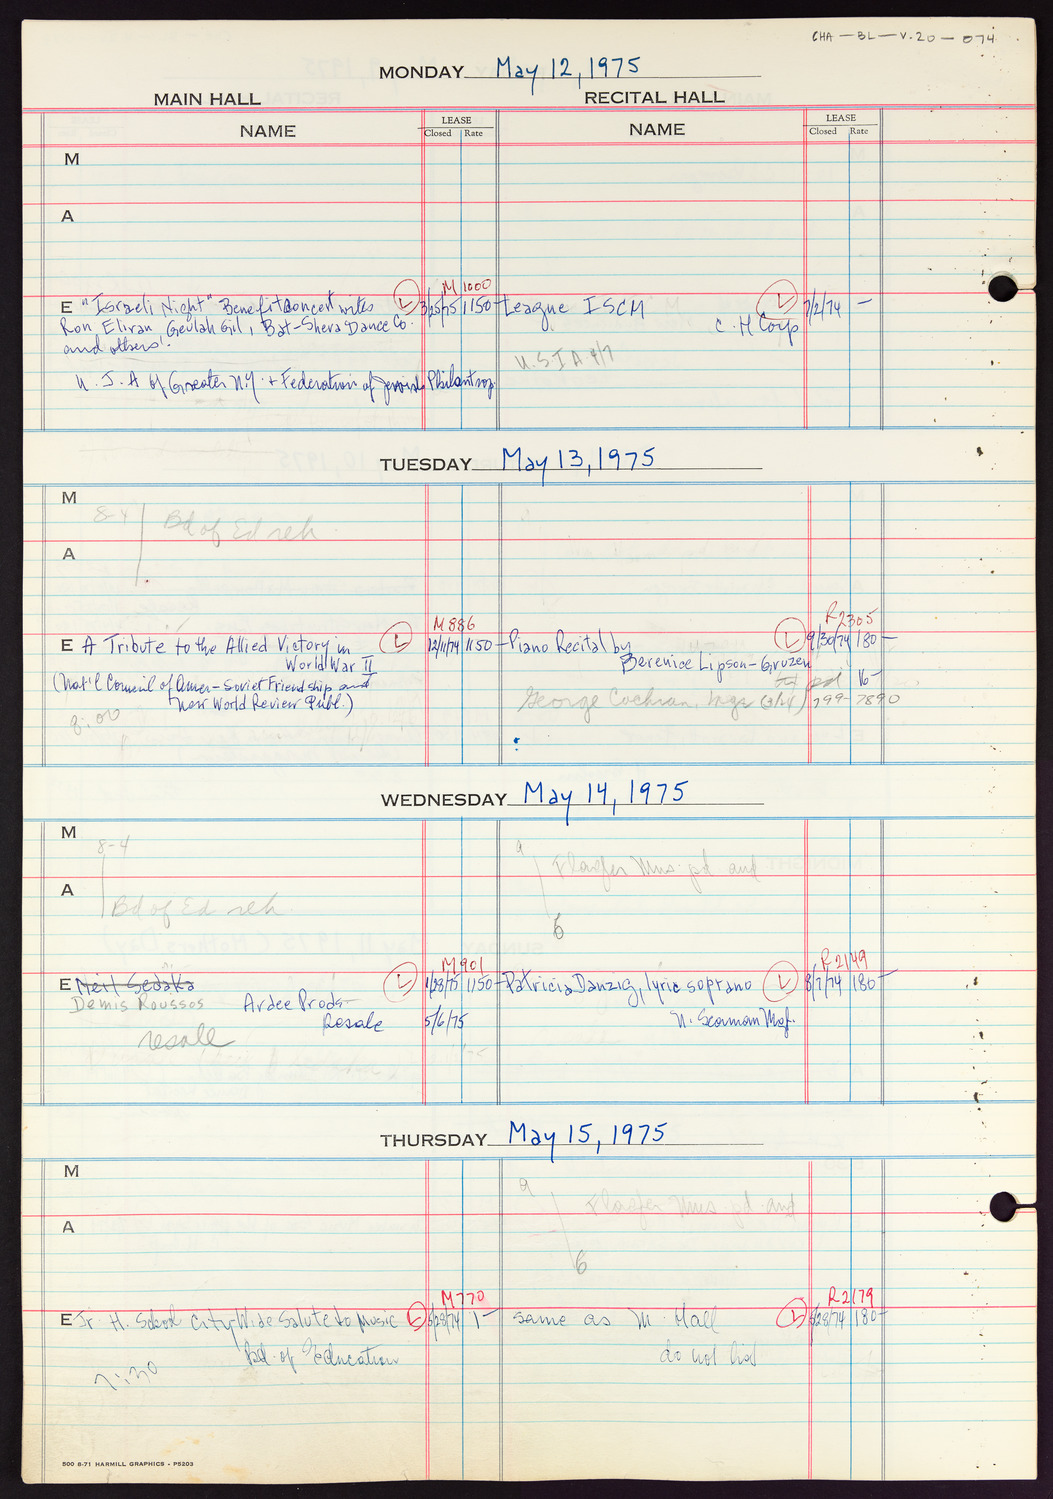 CHA - BL - V.20 - 074
MONDAY May 12, 1975
MAIN HALL RECITAL HALL
NAME LEASE Closed Rate NAME LEASE Closed Rate
M
A
M 1000
E "Israeli Night" Benefit concert w/ L 3/25/75 1150- League ISCM L 7/2/74 -
Ron Eliran, Geulah Gil, Bat-Sheva Dance Co. C. H Corp
and others.
U.S.I.A 4/7
U. J. A of Greater N.Y. + Federation of Jewish Philantrop
TUESDAY May 13, 1975
M
8-4 Bd of Ed reh
A
M 886 R2305
E A Tribute to the Allied Victory in L 12/11/74 1150- Piano Recital by L 9/30/74 180-
World War II Berenice Lipson-Gruzen
(Nat'l Council of Amer-Soviet Friendship and pd 16-
New World Review Publ.) George Cochran, mgr 799-7890
8:00
WEDNESDAY May 14, 1975
M
8-4 9
Mus. pd and
A
Bd of Ed reh.
6
M 901 R2149
E Neil Sedaka L 1/28/75 1150- Patricia Danzig, lyric soprano L 8/7/74 180-
Demis Roussos Ardee Prods-
Resale 5/6/75 N. Seaman Mgt.
resale
THURSDAY May 15, 1975
M
9
Mus. pd. and
A
6
M770 R2179
E Jr. H. School City Wide Salute to Music L 5/28/74 1- same as M. Hall L 5/28/74 180-
Bd. of Education do not
7:30
500 8-71 HARMILL GRAPHICS - P5203